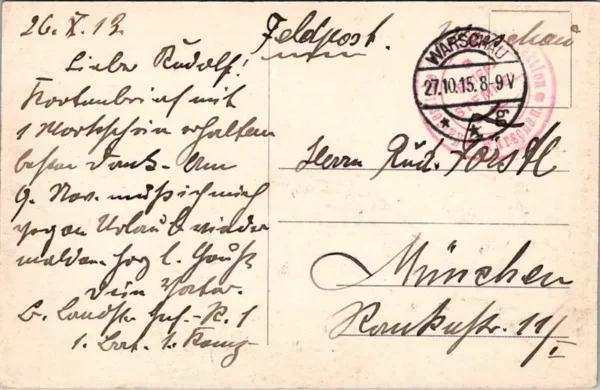 26. X. 15.
Feldpost.
Warschau
WARSCHAU
27.10.15. 8-9 V
Lieber Rudolf!
Kartenbrief mit
1 Markschein erhalten
besten Dank. Am
9. Nov. muß ich mich
wegen Urlaub wieder
melden. Herzl. Gruß
Dein Vater.
B. Landst. Inf.-R. 1
1. Bat. 1. Komp.
Herrn Rud. Förstl
München
Rankestr. 11/I